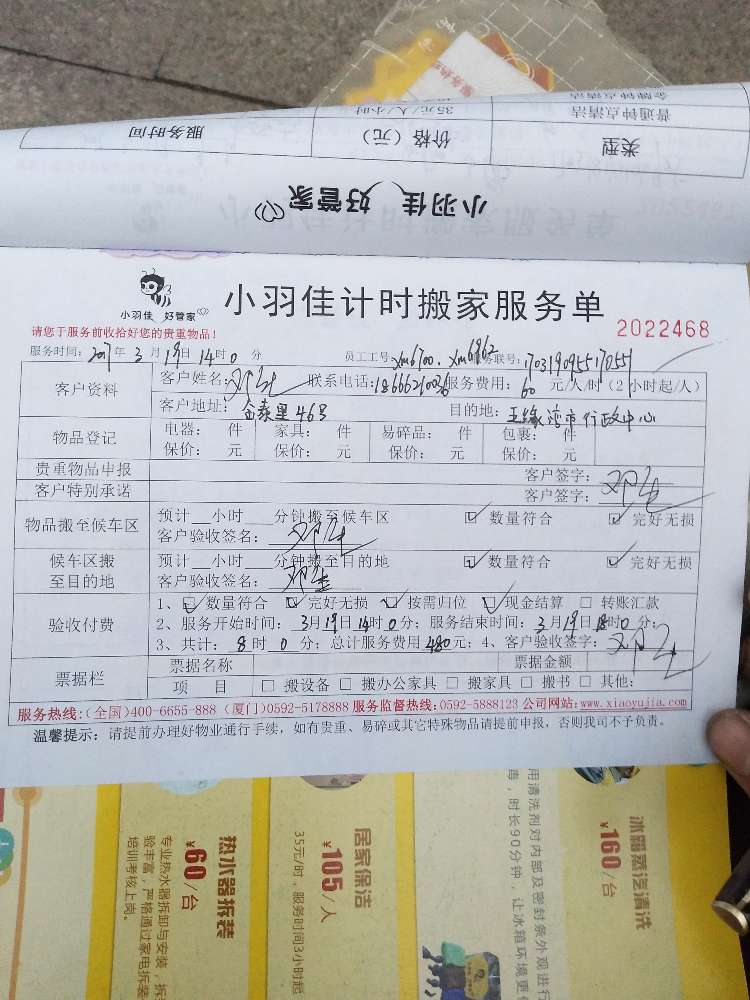 类型
价格（元）
服务时间
普通钟点清洁
35元/人/小时
金牌钟点清洁
小羽佳 好管家
小羽佳 好管家
小羽佳计时搬家服务单
请您于服务前收拾好您的贵重物品！
2022468
服务时间：2017年3月19日14时0分 员工工号：xm6700、xm6962
客户资料
客户姓名： 联系电话：18666210036 服务费用：60元/人/时（2小时起/人）
客户地址：金泰里46号 目的地：市行政中心
物品登记
电器： 件 家具： 件 易碎品： 件 包裹： 件
保价： 元 保价： 元 保价： 元 保价： 元
贵重物品申报 客户签字：
客户特别承诺 客户签字：
物品搬至候车区
预计__小时___分钟搬至候车区 ☑数量符合 ☑完好无损
客户验收签名：
候车区搬至目的地
预计__小时___分钟搬至目的地 ☑数量符合 ☑完好无损
客户验收签名：
验收付费
1、☑数量符合 ☑完好无损 ☑按需归位 ☑现金结算 □转账汇款
2、服务开始时间：3月19日14时0分；服务结束时间：3月19日18时0分；
3、共计：8时0分；总计服务费用480元；4、客户验收签字：
票据栏
票据名称 票据金额
项 目 □搬设备 □搬办公家具 □搬家具 □搬书 □其他：
服务热线：(全国)400-6655-888 (厦门)0592-5178888 服务监督热线：0592-5888123 公司网站：www.xiaoyujia.com
温馨提示：请提前办理好物业通行手续，如有贵重、易碎或其它特殊物品请提前申报，否则我司不予负责。
冰箱蒸汽清洗
¥160/台
用清洗剂对内部及密封条外观进行
毒，时长90分钟，让冰箱环境更
居家保洁
¥105/人
35元/时，服务时间3小时起
热水器拆装
¥60/台
专业热水器拆卸与安装，拆
验丰富，严格通过家电拆装
培训考核上岗。